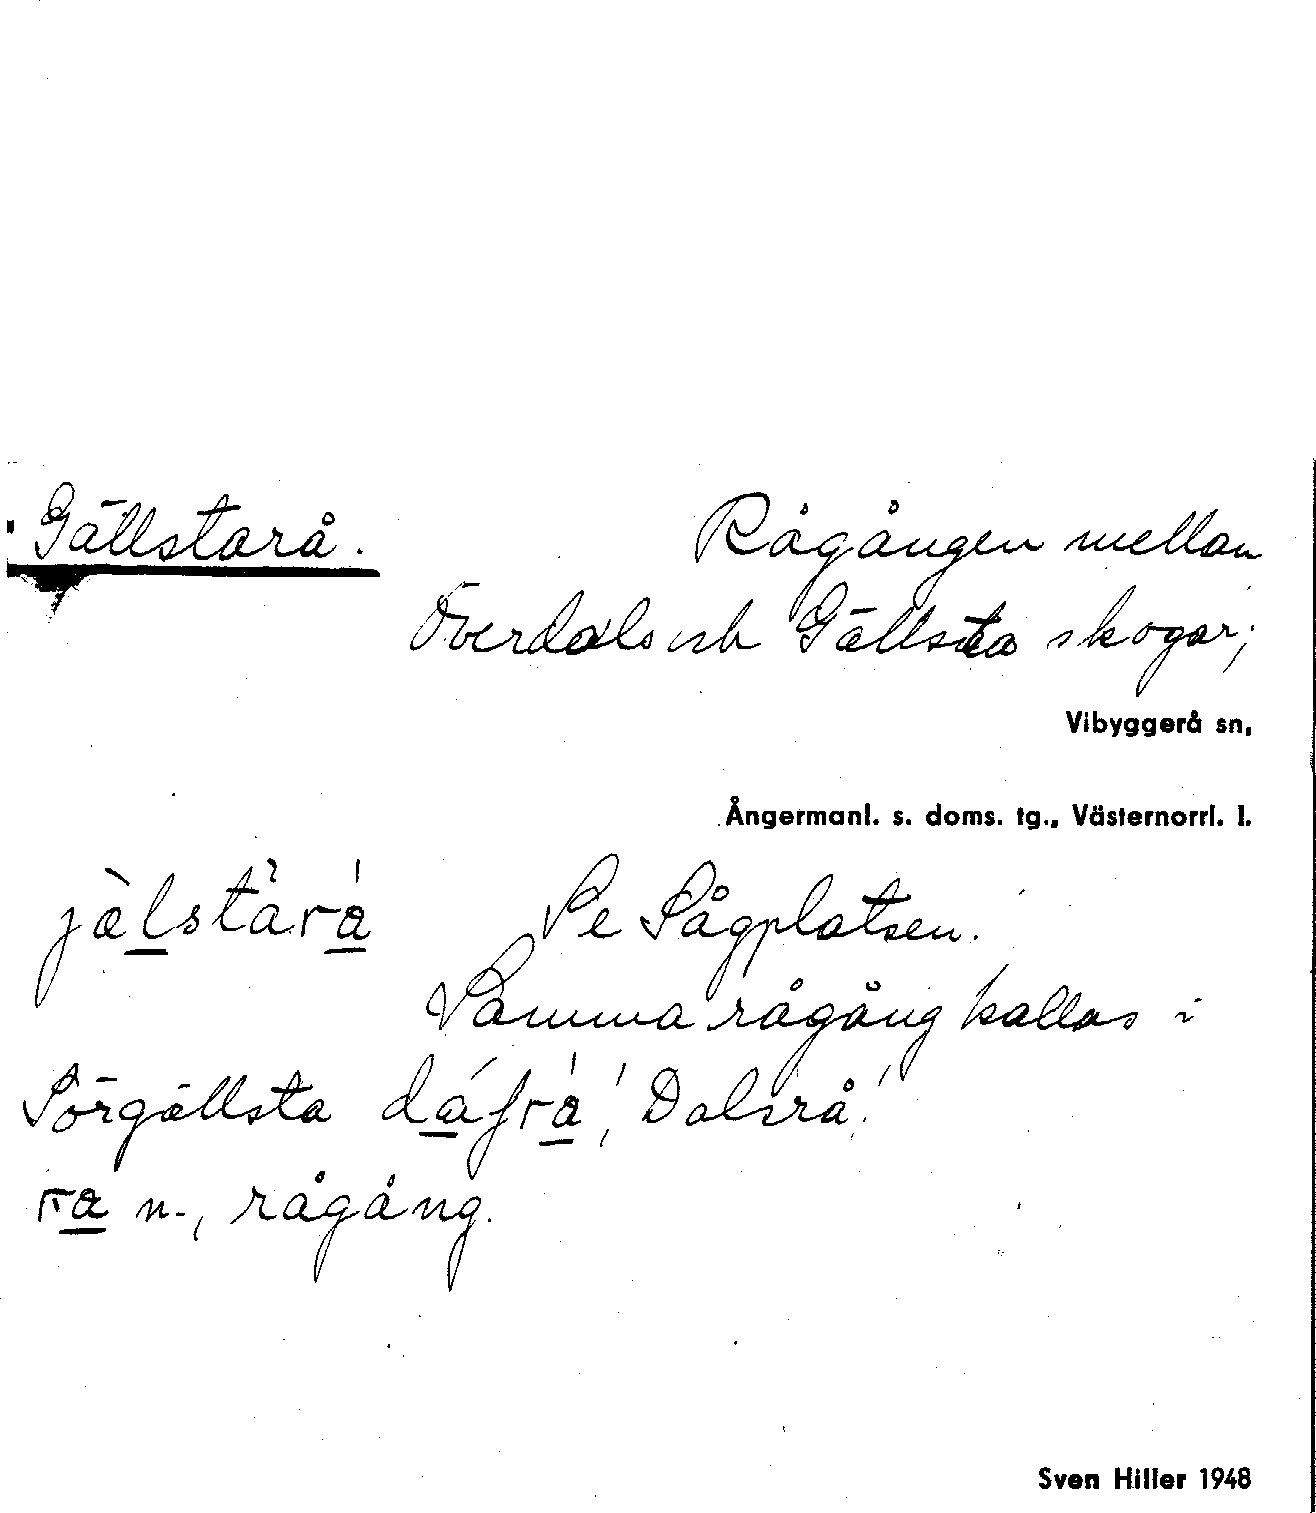 Gällstarå. Rågången mellan
Överdals och Gällsta skogar;
Vibyggerå sn,
Ångermanl. s. doms. tg., Västernorrl. l.
Se Sågplatsen.
Samma rågång kallas i
Sörgällsta 'Dalsrå'
ra n., rågång.
Sven Hiller 1948